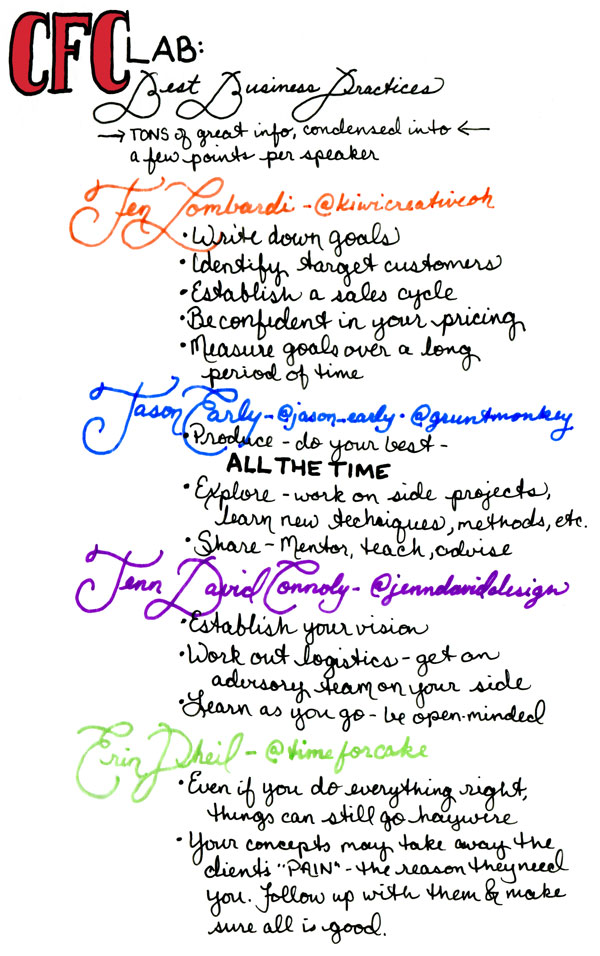 CFC LAB:
Best Business Practices
→ TONS of great info, condensed into ←
a few points per speaker
Jen Lombardi - @kiwicreativeoh
• Write down goals
• Identify target customers
• Establish a sales cycle
• Be confident in your pricing
• Measure goals over a long
period of time
Jason Early - @jason_early • @gruntmonkey
• Produce - do your best -
ALL THE TIME
• Explore - work on side projects,
learn new techniques, methods, etc.
• Share - Mentor, teach, advise
Jenn David Connoly - @jenndaviddesign
• Establish your vision
• Work out logistics - get an
advisory team on your side
• Learn as you go - be open-minded
Erin Pheil - @timeforcake
• Even if you do everything right,
things can still go haywire
• Your concepts may take away the
clients "PAIN" - the reason they need
you. Follow up with them & make
sure all is good.